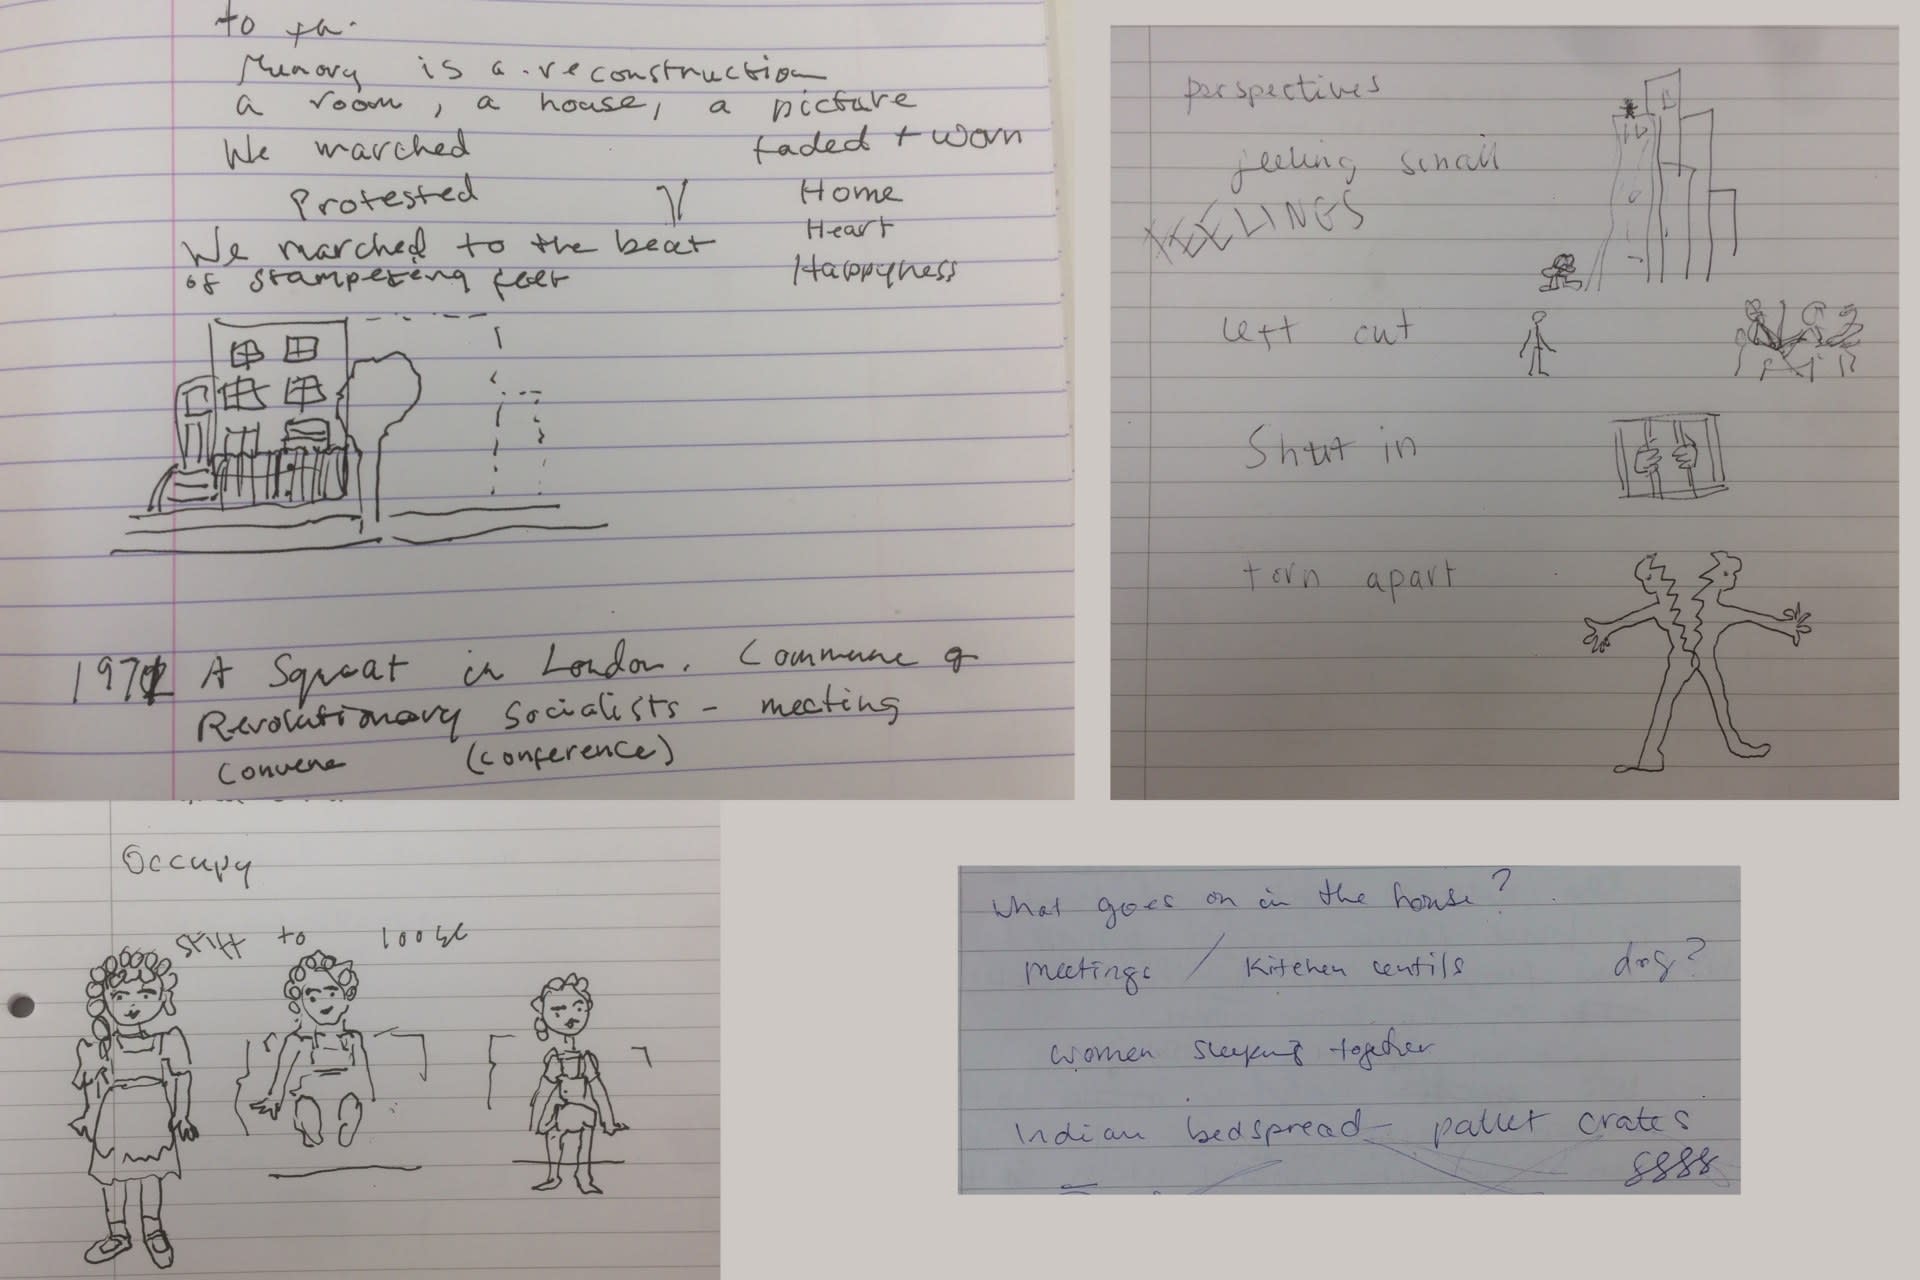 to
Memory is a reconstruction
a room, a house, a picture
We marched faded + worn
Protested Home
Heart
We marched to the beat
of stampeting feet Happyness
1971 A Squat in London. Commune of
Revolutionary Socialists - meeting
convene (conference)
perspectives
feeling small
FEELINGS
left out
Shut in
torn apart
Occupy
stiff to loose
What goes on in the house?
meetings / Kitchen dog?
women sleeping together
Indian bedspread - pallet crates